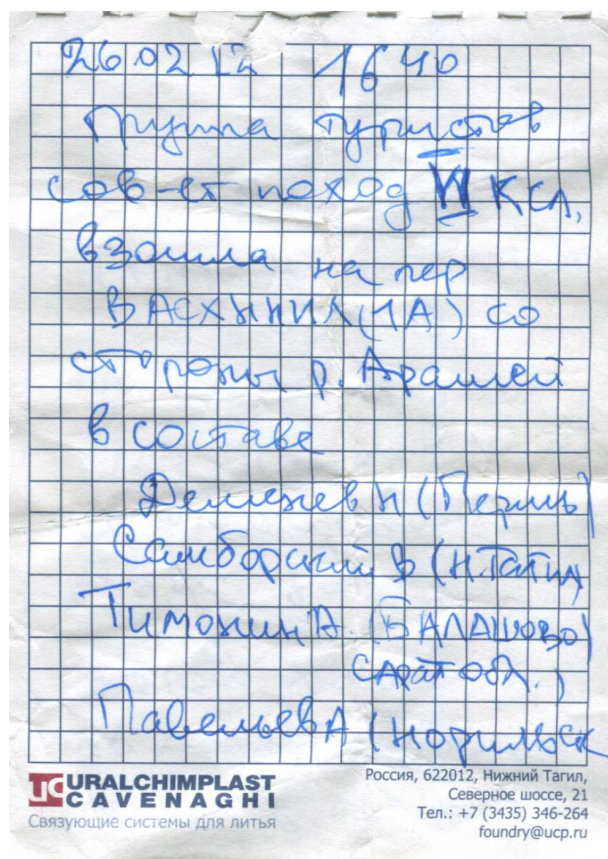 26 02 12 16 40
Группа туристов
сов-ет поход VI к сл,
взошла на пер
ВАСХНИЛ (1А) со
стороны р. Арашей
в составе
Демене́в Н (Пермь)
Самборский В (Н.Тагил
Тимонин А. (БАЛАШОВО)
САРАТ ОБЛ.)
Павельев А (Норильск
URALCHIMPLAST
CAVENAGHI
Связующие системы для литья
Россия, 622012, Нижний Тагил,
Северное шоссе, 21
Тел.: +7 (3435) 346-264
foundry@ucp.ru